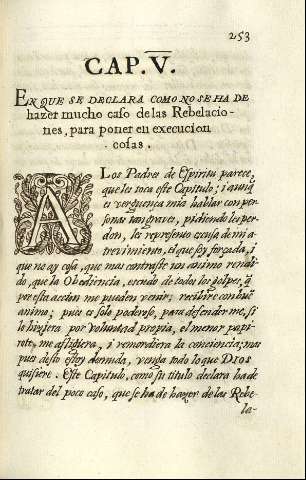 253
CAP. V.
EN QUE SE DECLARA COMO NO SE HA DE
hazer mucho caso de las Rebelacio-
nes, para poner en execucion
. cosas .
A Los Padres de Espiritu parece,
que les toca este Capitulo; i aunq̃
es verguença mia hablar con per-
sonas tan graves, pidiendoles per-
don, les represento escusa de mi a-
trevimiento, el que soy forçada, i
que no ay cosa, que mas contraste un animo rendi-
do, que la Obediencia, escudo de todos los golpes, q̃
por esta accion me pueden venir; recibire con buẽ
animo; pues es solo poderoso, para defenderme, si
lo hiziera por voluntad propia, el menor papi-
rote, me afligiera, i remordiera la conciencia; mas
pues desto estoy desnuda, venga todo lo que DIOS
quisiere. Este Capitulo, como su titulo declara ha de
tratar del poco caso, que se ha de hazer de las Rebe-
la-